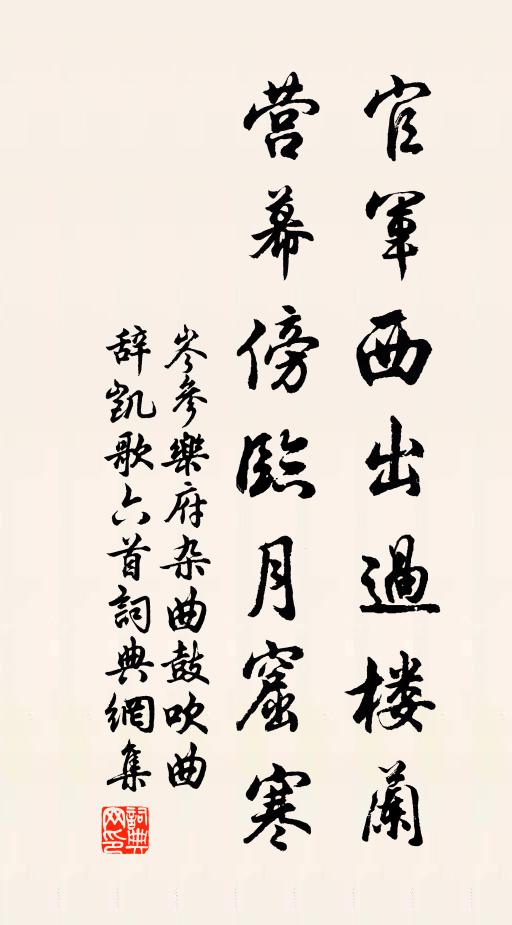 官军西出過楼蘭
营幕傍臨月窟寒
岑參樂府杂曲鼓吹曲
辞凯歌六首詞典網集
詞典
网印